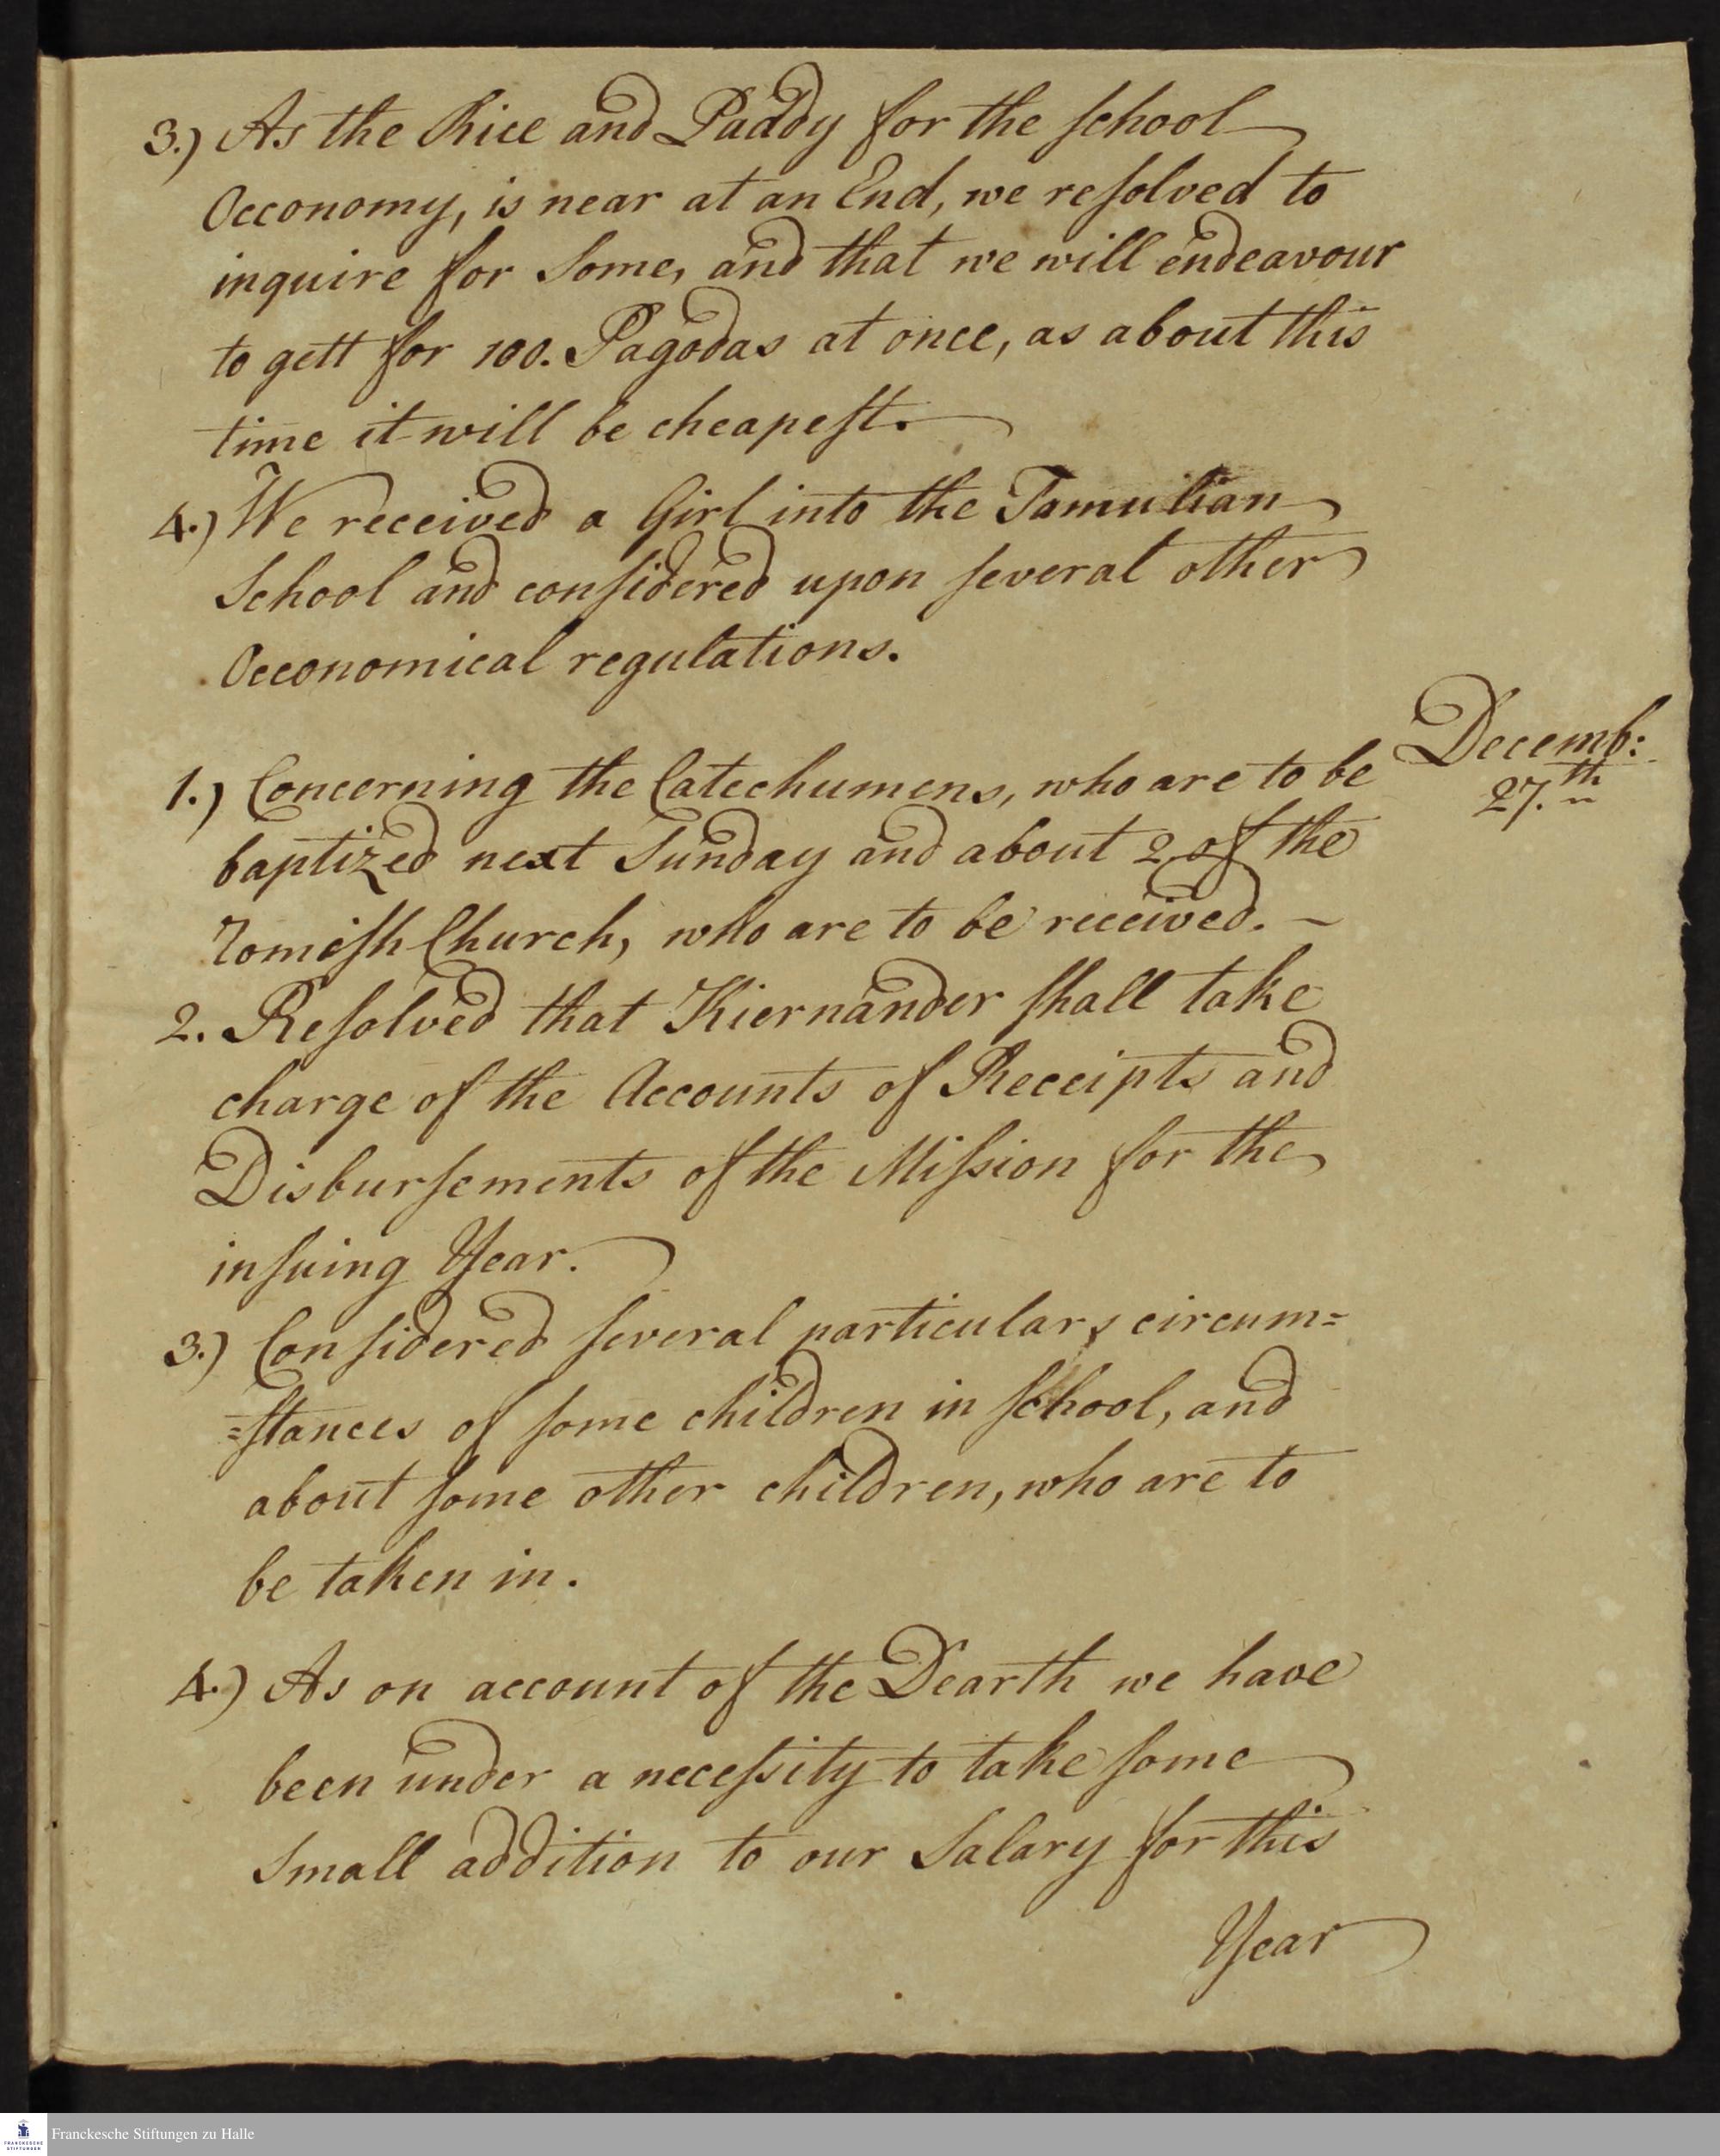 3.) As the Rice and Paddy for the school
Oeconomy, is near at an End, we resolved to
inquire for Some, and that we will endeavour
to gett for 100. Pagodas at once, as about this
time it will be cheapest.
4.) We received a Girl into the Tamulian
School and considered upon several other
Oeconomical regulations.
Decemb:
27.th
1.) Concerning the Catechumens, who are to be
baptized next Sunday and about 2 of the
Romish Church, who are to be received. –
2. Resolved that Kiernander shall take
charge of the Accounts of Receipts and
Disbursements of the Mission for the
insuing Year.
3.) Considered several particulars circum=
=stances of some children in school, and
about some other children, who are to
be taken in.
4.) As on account of the Dearth we have
been under a necessity to take some
Small addition to our Salary for this
Year
FRANCKESCHE
STIFTUNGEN
Franckesche Stiftungen zu Halle